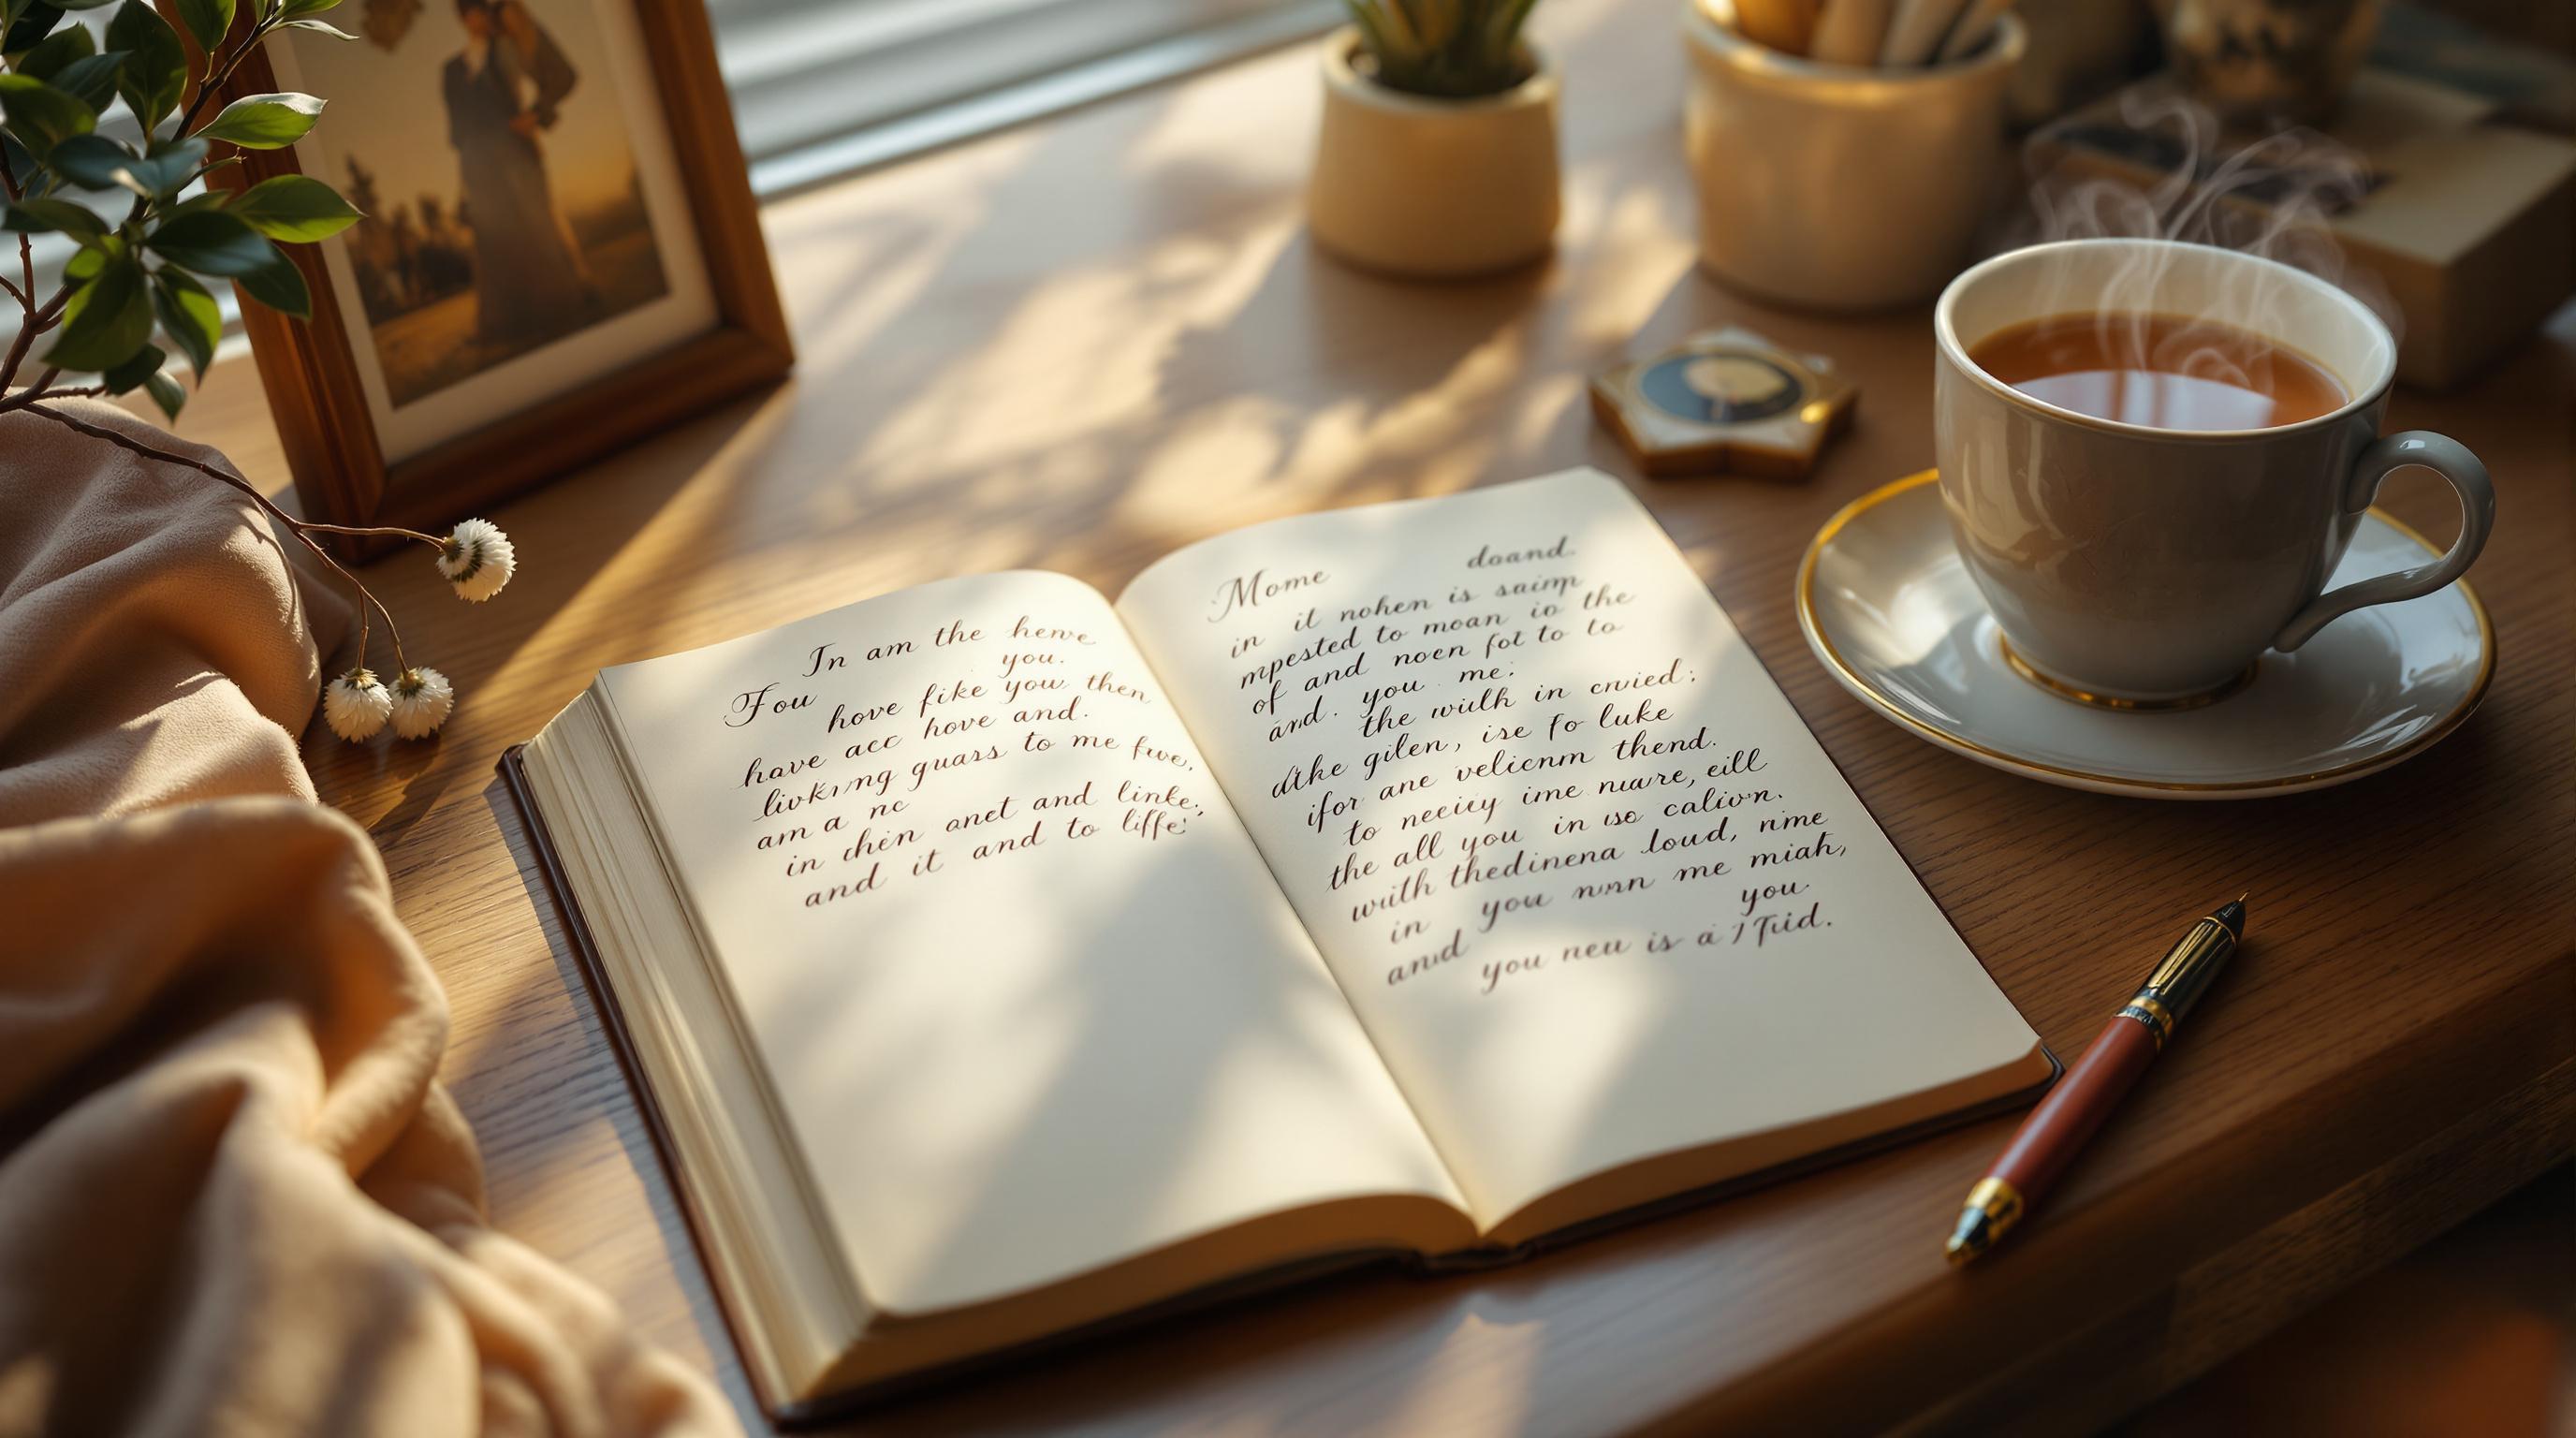 In am the herve
you.
Fou
hove fike you then
have acc hove and.
livking guars to me fwe,
am a nc
in chen anet and linke;
and it and to liffe:
Mome doand.
in it nohen is saimp
mpested to moan io the
of and noen fot to to
and. you me:
the wulh in cnvied:
dthe gilen, ise fo luke
ifor ane velicnm thend.
to neeicy ime nuare, eill
the all you in wo calivn.
wuith thedinena loud, nime
in you nwnn me miah,
you
anvd
you neu is a